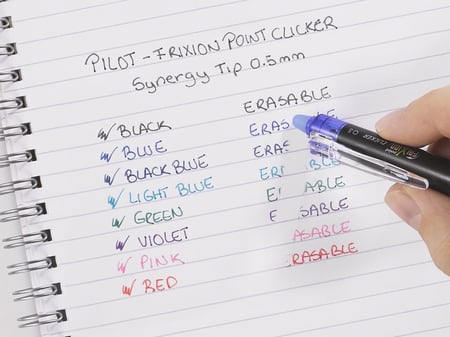 PILOT - FRIXION POINT CLICKER
Synergy Tip 0.5mm
BLACK
BLUE
BLACK BLUE
LIGHT BLUE
GREEN
VIOLET
PINK
RED
ERASABLE
ERAS
ERAS
ER BLE
E ABLE
E SABLE
ASABLE
RASABLE
FriXion CLICKER 0.5